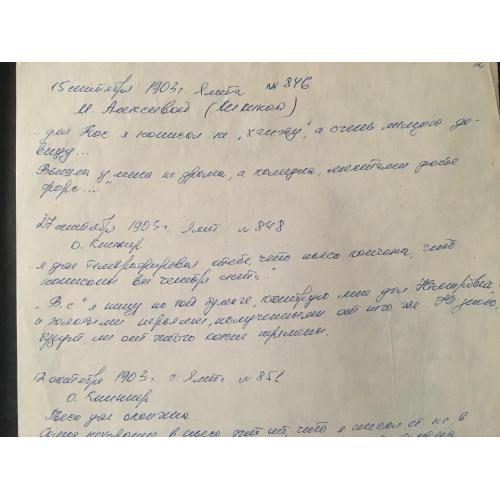 15 сентября 1903 г. Ялта № 846
М. Алексеевой (Лилиной)
"для Вас я написал не "ханжу", а очень милую де-
вицу...
Вышла у меня не драма, а комедия, местами даже
фарс..."
27 сентября 1903 г. Ялта № 848
О. Книппер
"я уже телеграфировал тебе, что пьеса кончена, что
написаны все четыре акта..."
"В. с" я пишу на той бумаге, которую мне дал Немирович,
и золотыми перьями, полученными от него же. Не знаю,
будут ли от этого какие перемены.
12 октября 1903 г. Ялта № 851
О. Книппер
Пьеса уже окончена
в пьесе что я писал её не в